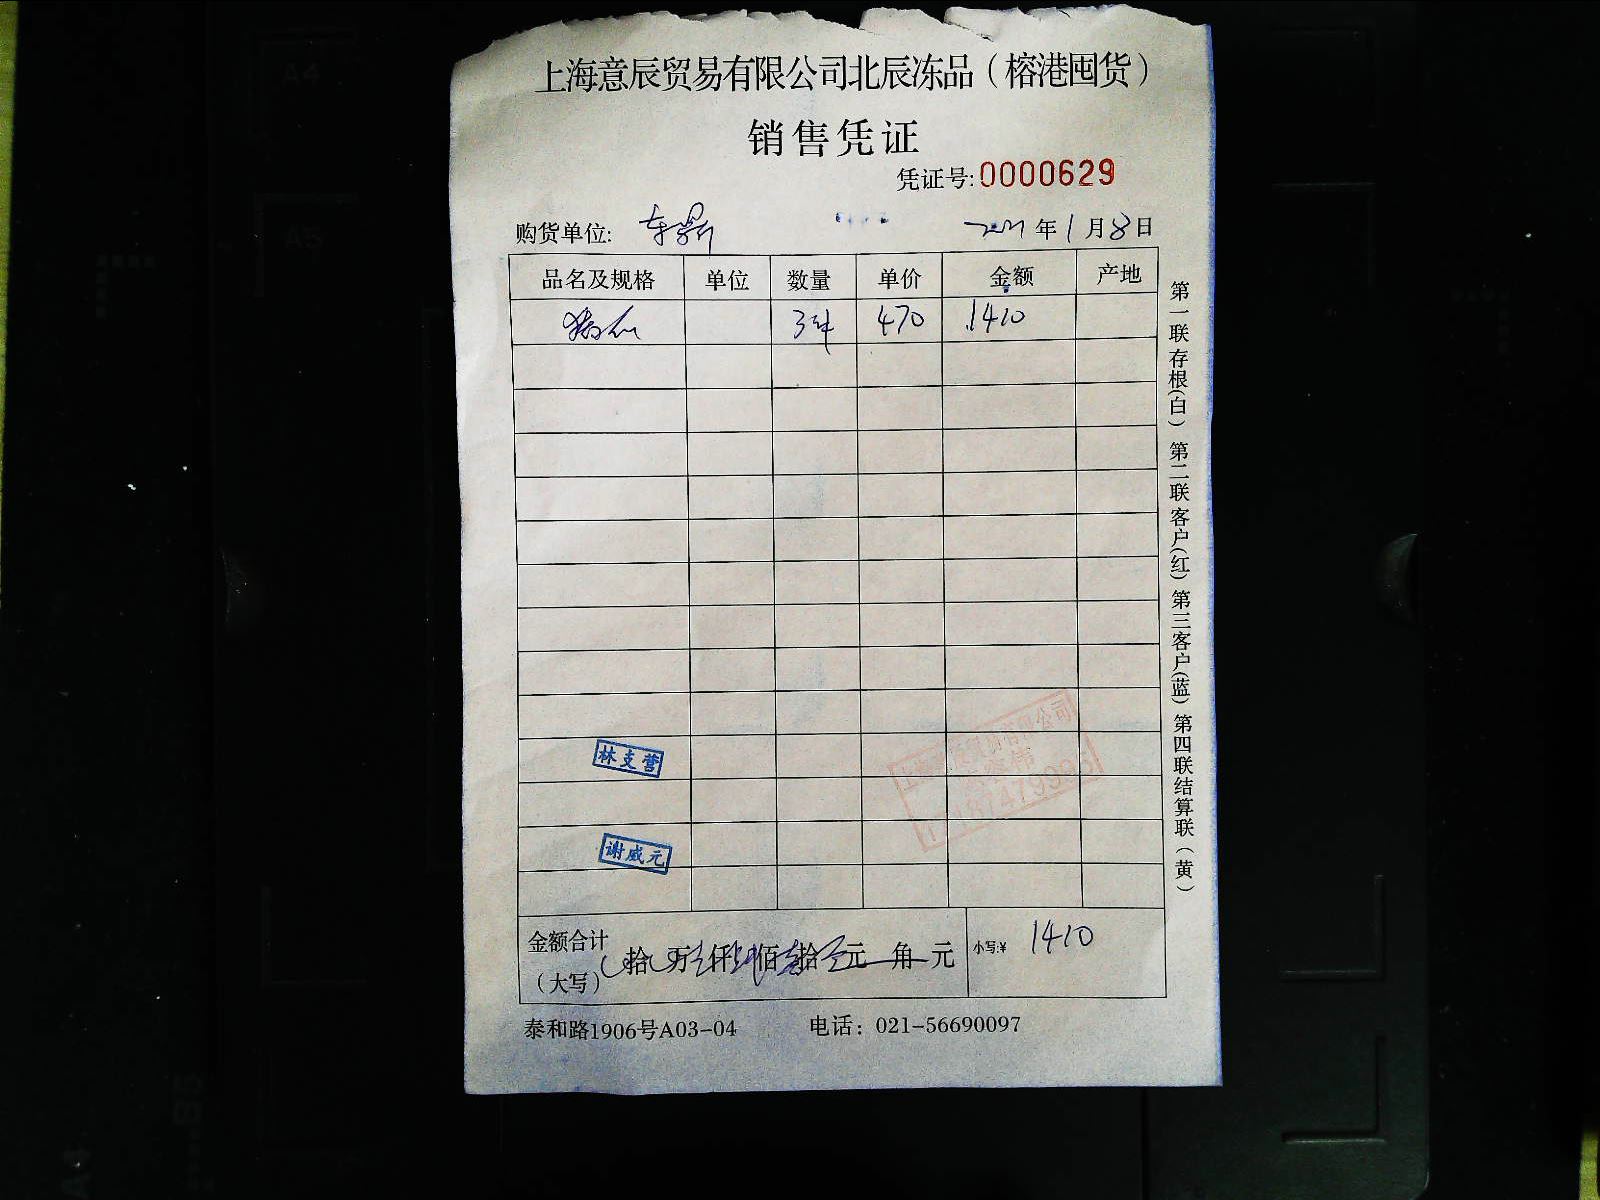 上海意辰贸易有限公司北辰冻品（榕港囤货）
销售凭证
凭证号:0000629
购货单位: 年1月8日
品名及规格 单位 数量 单价 金额 产地
3件 470 1410
林支营
谢威元
金额合计（大写） 拾 万 仟 佰 拾 元 角 元 小写:¥ 1410
泰和路1906号A03-04 电话：021-56690097
第一联存根(白) 第二联客户(红) 第三客户(蓝) 第四联结算联(黄)